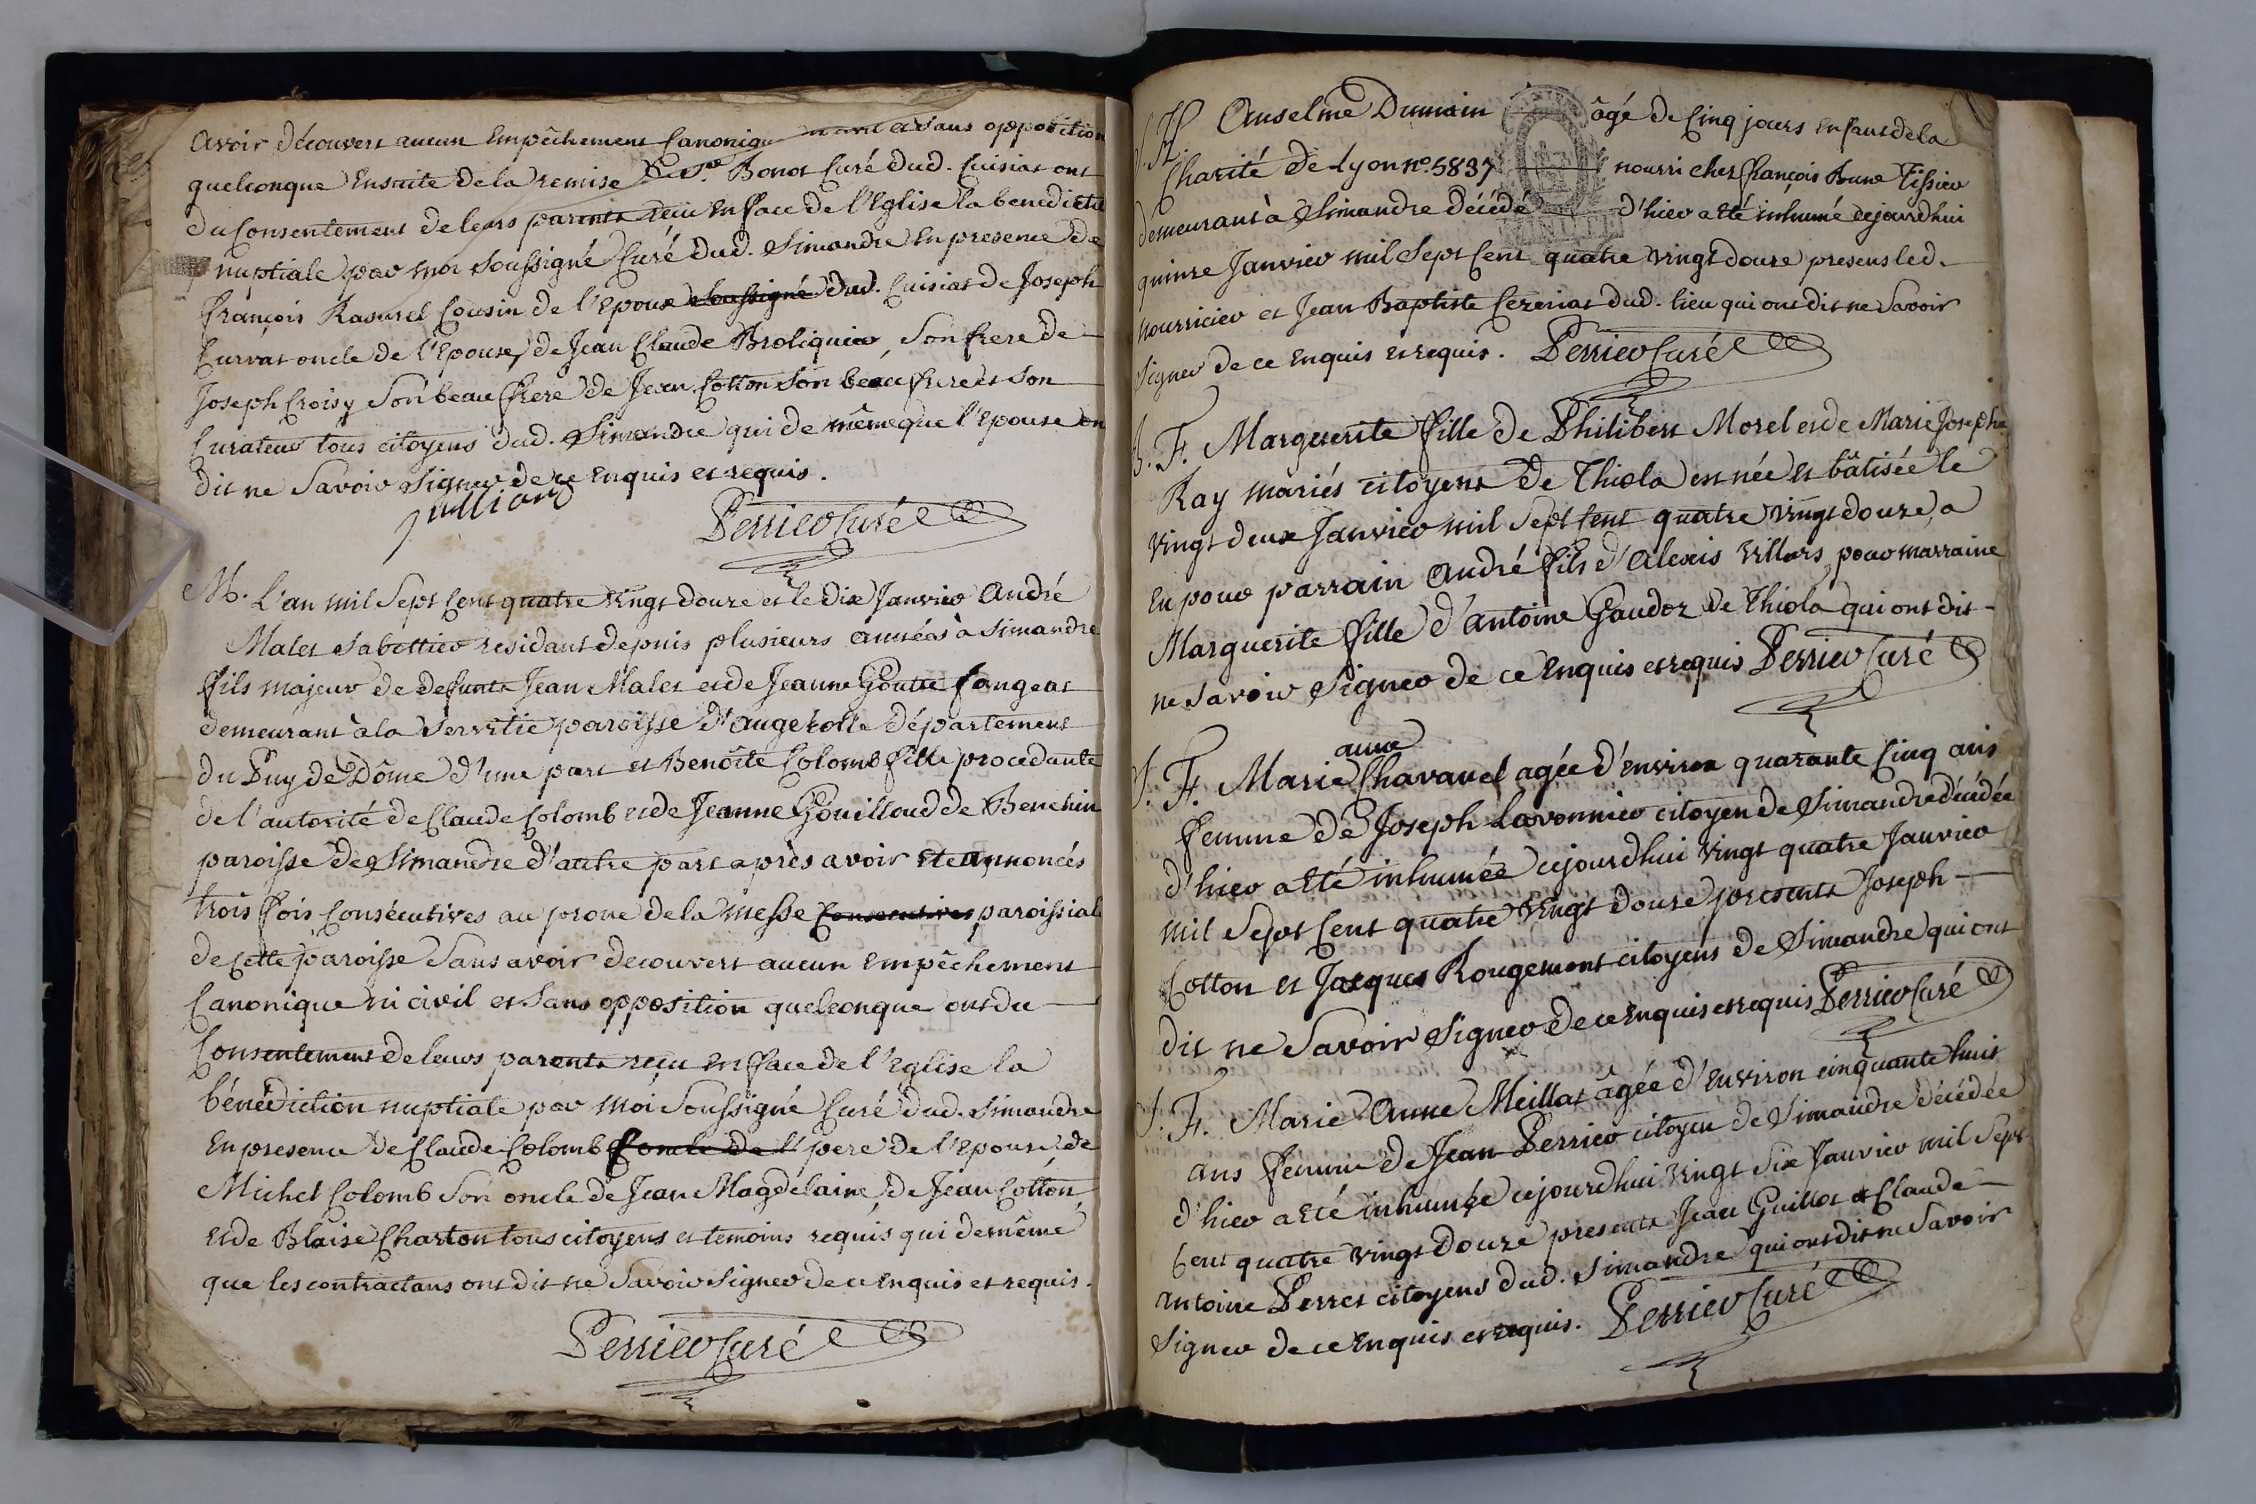 avoir découvert aucun Empêchement Canonique ni civil et Sans opposition
quelconque Ensuite de la remise Bonot Curé dud. Cuisiat ont
du Consentement de leurs parents reçu En face de l'Eglise la benediction
nuptiale par moi soussigné Curé dud. Simandre En presence de
françois Rasurel Cousin de l'Epoux soussigné dud. Cuisiat de Joseph
Curvat oncle de l'Epouse, de Jean Claude Broliquier, Son frere de
Joseph Croisy Son beau frere de Jean Cotton Son beau frere et Son
Curateur tous citoyens dud. Simandre qui de même que l'Epouse on
dit ne Savoir Signer de ce Enquis et requis.
jullion
Perrier Curé
M. L'an mil Sept Cent quatre vingt douze et le dix Janvier André
Malet Sabottier residant depuis plusieurs années à Simandre
fils majeur de defunts Jean Malet et de Jeanne Goutte fongeat
demeurant à la Servetie paroisse d'augerolle département
du Puy de Dôme d'une part et Benoîte Colomb fille procedante
de l'autorité de Claude Colomb et de Jeanne Gouilloud de Benchin
paroisse de Simandre d'autre part après avoir Eté annoncés
trois fois Consécutives au prone de la messe Consecutives paroissial
de Cette paroisse Sans avoir decouvert aucun Empêchement
Canonique ni civil et Sans opposition quelconque ont du
Consentement de leurs parents reçu En face de l'Eglise la
bénédiction nuptiale par moi Soussigné Curé dud. Simandre
En presence de Claude Colomb l'oncle de l' pere de l'Epouse, de
Michel Colomb Son oncle de Jean Magdelaine, de Jean Cotton
et de Blaise Charton tous citoyens et temoins requis qui de même
que les contractans ont dit ne Savoir Signer de ce Enquis et requis.
Perrier Curé
S. H. Anselme Dumain âgé de Cinq jours enfant de la
Charité de Lyon n.º 5837 nourri chez françois Buno Tissier
demeurant à Simandre décédé d'hier a Eté inhumé cejourdhui
quinze Janvier mil Sept Cent quatre vingt douze presens led.
nourricier et Jean Baptiste Cezeriat dud. lieu qui ont dit ne Savoir
Signer de ce Enquis et requis. Perrier Curé
B. F. Marguerite fille de Philibert Morel et de Marie Josephe
Ray mariés citoyens de Thiola est née et bâtisée le
vingt deux Janvier mil Sept Cent quatre vingt douze, a
Eu pour parrain André fils d'Alexis Villars, pour marraine
Marguerite fille d'antoine Gaudoz de Thiola qui ont dit
ne Savoir Signer de ce Enquis et requis Perrier Curé
S. F. Marie anne Chavanel agée d'environ quarante Cinq ans
femme de Joseph Lavonnier citoyen de Simandre décédée
d'hier a Eté inhumée cejourdhui vingt quatre Janvier
mil Sept Cent quatre vingt douze presents Joseph
Cotton et Jacques Rougemont citoyens de Simandre qui ont
dit ne Savoir Signer de ce Enquis et requis Perrier Curé
S. F. Marie Anne Meillat âgée d'Environ cinquante huit
ans femme de Jean Perrier citoyen de Simandre décédée
d'hier a Eté inhumée cejourdhui vingt Six Janvier mil Sept
Cent quatre vingt douze presents Jean Guillot et Claude
antoine Perret citoyens dud. Simandre qui ont dit ne Savoir
Signer de ce Enquis et requis. Perrier Curé